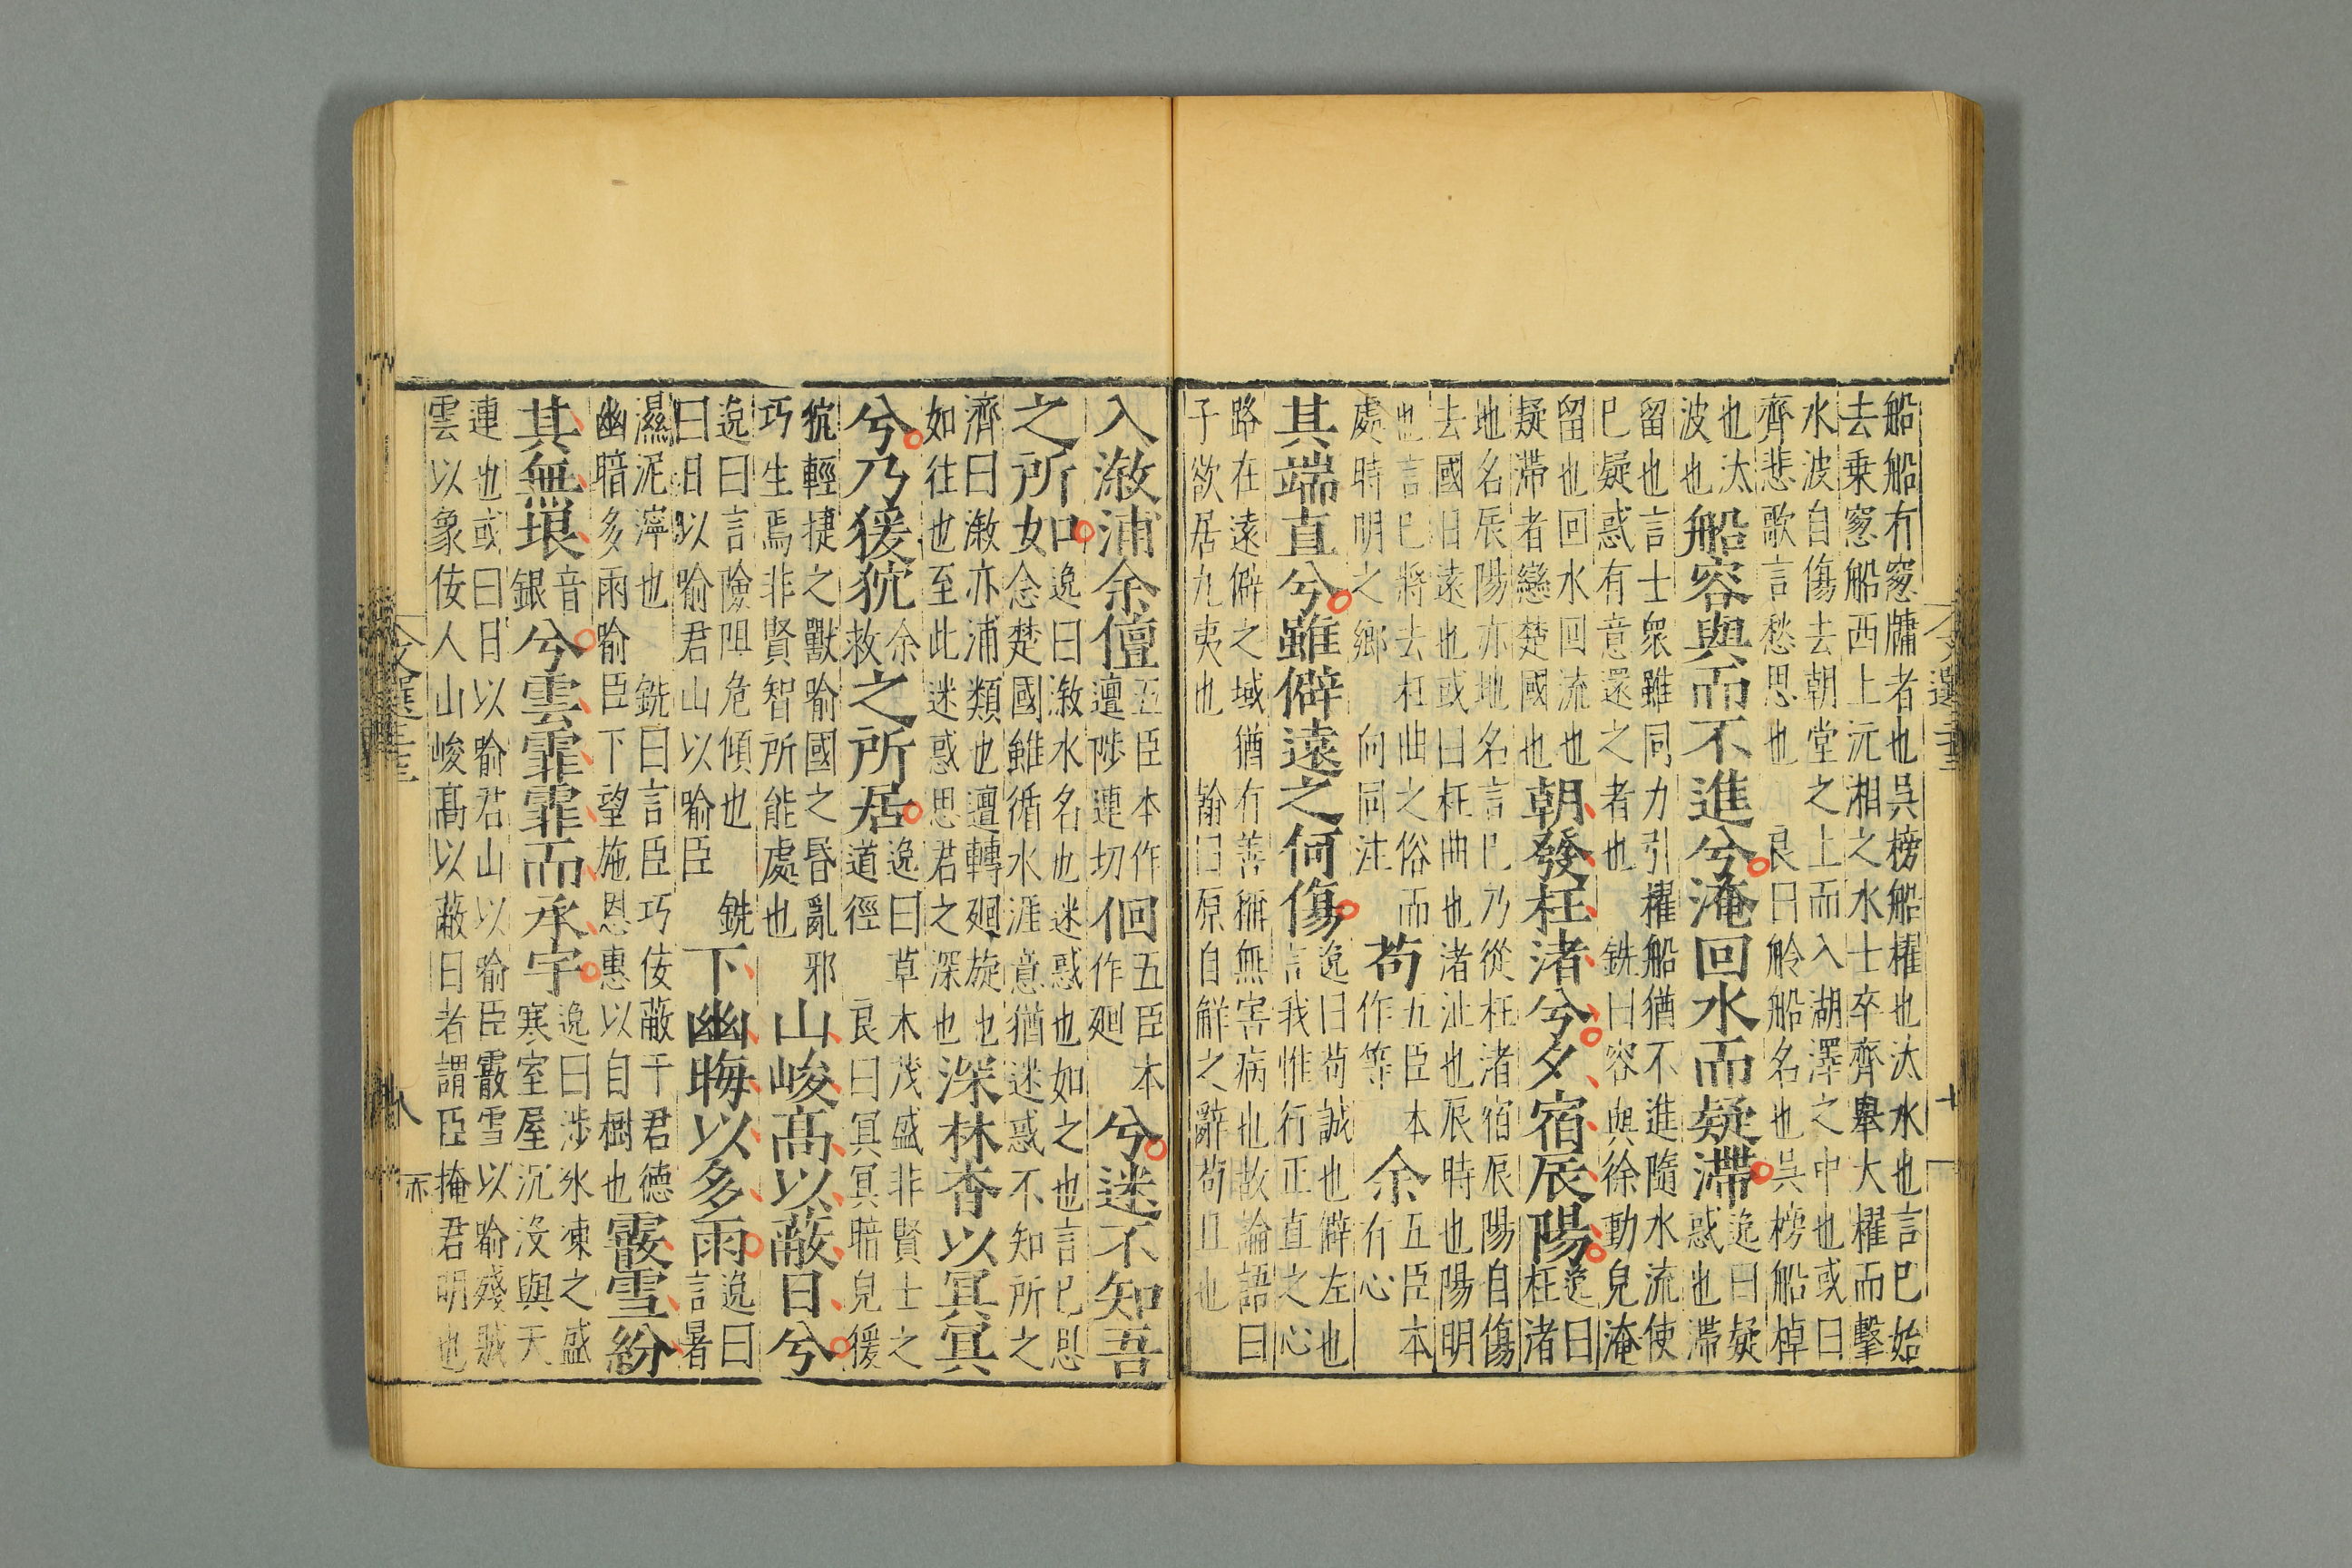 船船有窓牖者也吳榜船櫂也汰水也言巳始
去乗窓船西上沅湘之水士卒齊舉大櫂而擊
水波自傷去朝堂之上而入湖澤之中也或曰
齊悲歌言愁思也 良曰舲船名也吳榜船棹
也汰波也船容與而不進兮淹回水而疑滯逸曰疑惑也滯
留也言士衆雖同力引櫂船猶不進隨水流使
巳疑惑有意還之者也 銑曰容與徐動皃淹
留也回水回流也疑滯者戀楚國也朝發枉渚兮夕宿辰陽逸曰枉渚
地名辰陽亦地名言巳乃從枉渚宿辰陽自傷
去國日遠也或曰枉曲也渚沚也辰時也陽明
也言巳將去枉曲之俗而處時明之鄉 向同注苟五臣本作等余五臣本有心
其端直兮雖僻遠之何傷逸曰苟誠也僻左也言我惟行正直之心
路在遠僻之域猶有善稱無害病也故論語曰
子欲居九夷也 翰曰原自解之辭苟且也
入溆浦余儃五臣本作邅陟連切佪五臣本作廻兮迷不知吾
之所如逸曰溆水名也迷惑也如之也言巳思念楚國雖循水涯意猶迷惑不知所之
齊曰溆亦浦類也邅轉廻旋也如往也至此迷惑思君之深也深林杳以冥冥
兮乃猨狖余救之所居逸曰草木茂盛非賢士之道徑 良曰冥冥暗皃猨
狖輕捷之獸喻國之昏亂邪巧生焉非賢智所能處也山峻高以蔽日兮
逸曰言險阻危傾也 銑曰日以喻君山以喻臣下幽晦以多雨逸曰言暑
濕泥濘也 銑曰言臣巧佞蔽干君德幽暗多雨喻臣下望施恩惠以自樹也霰雪紛
其無垠音銀兮雲霏霏而承宇逸曰涉氷凍之盛寒室屋沉沒與天
連也或曰日以喻君山以喻臣霰雪以喻殘賊
雲以象佞人山峻高以蔽日者謂臣掩君明也
文選
八